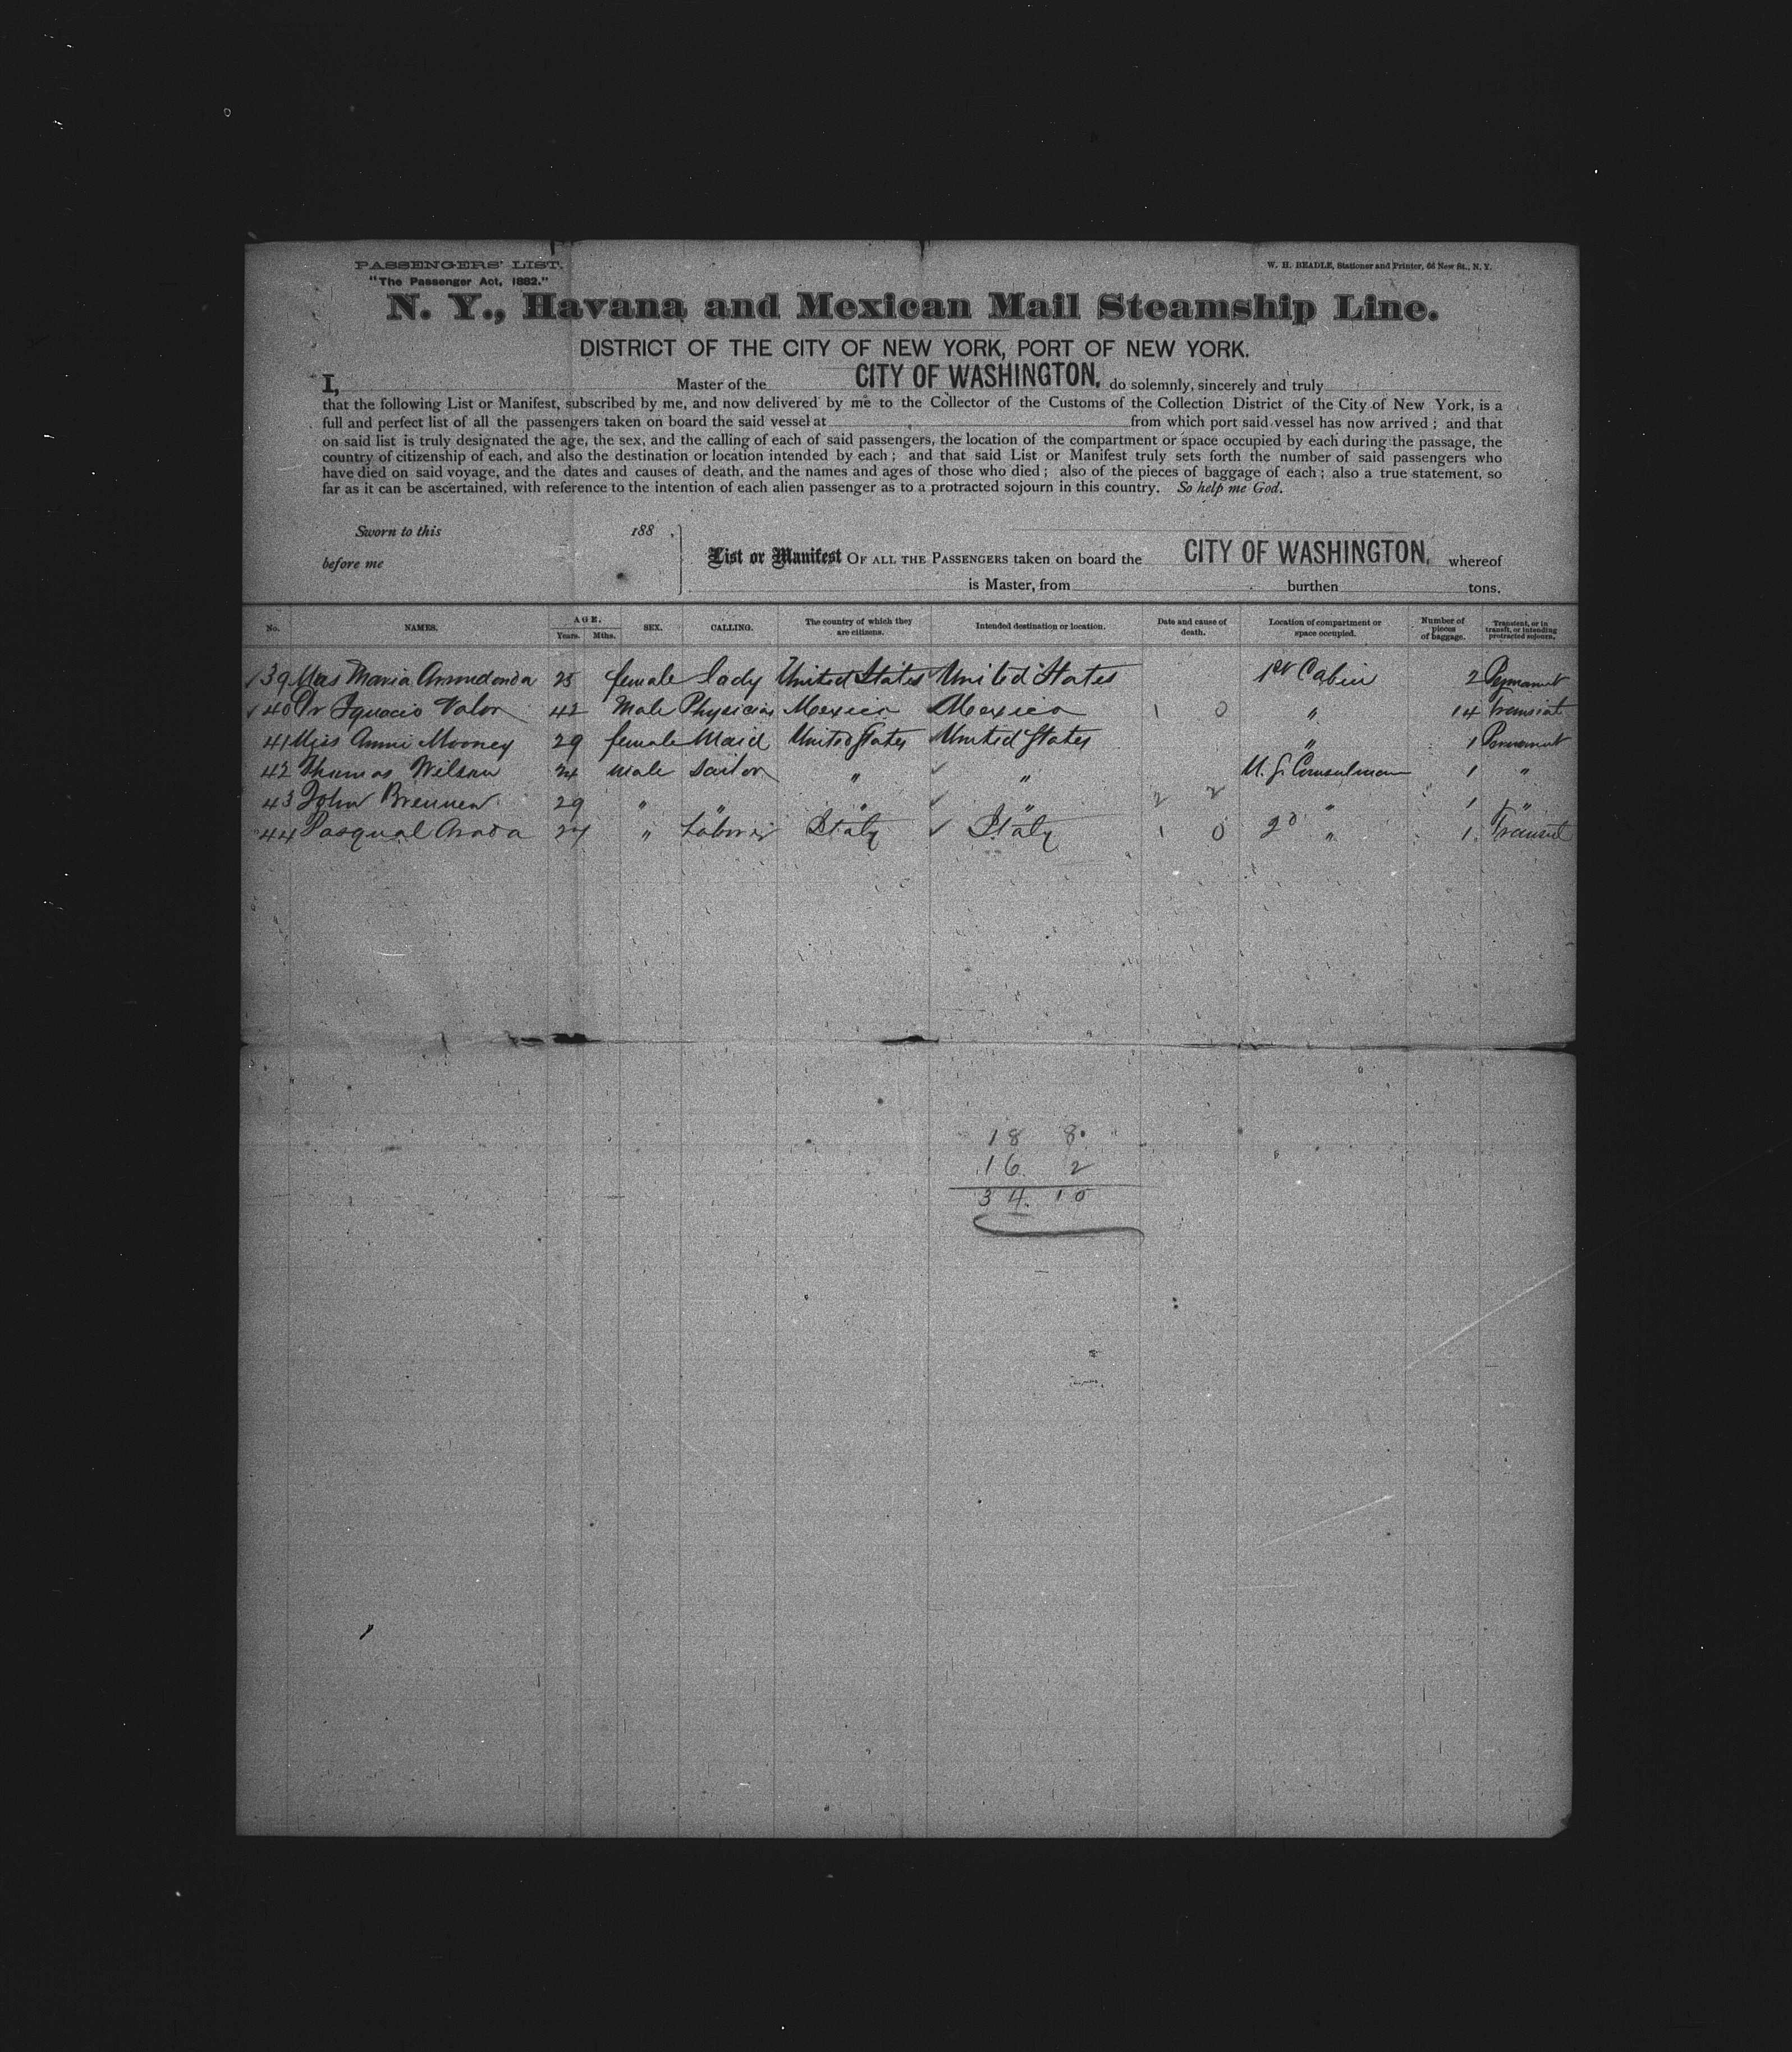 PASSENGERS' LIST.
W. H. BEADLE, Stationer and Printer, 64 New St., N. Y.
"The Passenger Act, 1882."
N. Y., Havana and Mexican Mail Steamship Line.
DISTRICT OF THE CITY OF NEW YORK, PORT OF NEW YORK.
I, Master of the CITY OF WASHINGTON, do solemnly, sincerely and truly
that the following List or Manifest, subscribed by me, and now delivered by me to the Collector of the Customs of the Collection District of the City of New York, is a
full and perfect list of all the passengers taken on board the said vessel at from which port said vessel has now arrived; and that
on said list is truly designated the age, the sex, and the calling of each of said passengers, the location of the compartment or space occupied by each during the passage, the
country of citizenship of each, and also the destination or location intended by each; and that said List or Manifest truly sets forth the number of said passengers who
have died on said voyage, and the dates and causes of death, and the names and ages of those who died; also of the pieces of baggage of each; also a true statement, so
far as it can be ascertained, with reference to the intention of each alien passenger as to a protracted sojourn in this country. So help me God.
Sworn to this 188 .
before me
List or Manifest OF ALL THE PASSENGERS taken on board the CITY OF WASHINGTON, whereof
is Master, from burthen tons.
No. NAMES. AGE. Years. Mths. SEX. CALLING. The country of which they are citizens. Intended destination or location. Date and cause of death. Location of compartment or space occupied. Number of pieces of baggage. Transient, or in transit, or intending protracted sojourn.
39 Mrs Maria 25 female Lady United States United States 1st Cabin 2 Permanent
40 Dr Ignacio Valor 42 Male Physician Mexico Mexico 1 0 " 14 Transient
41 Miss Annie Mooney 29 female Maid United States United States " 1 Permanent
42 Thomas Wilson 24 male Sailor " " U.S. 1 "
43 John Brennen 29 " " " " 2 2 " 1 "
44 Pasqual 27 " Laborer Italy Italy 1 0 2d " 1 Transient
18 8
16 2
34. 10